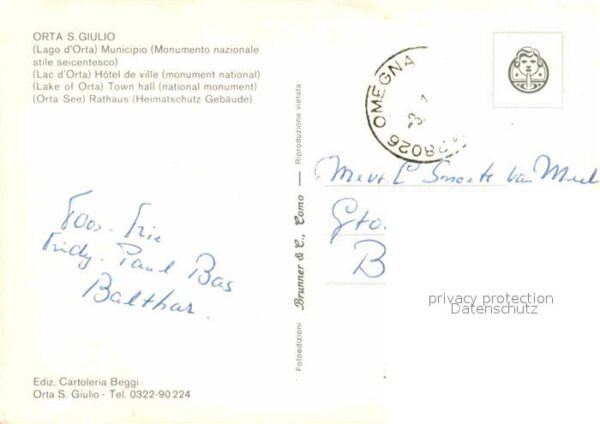 ORTA S. GIULIO
(Lago d'Orta) Municipio (Monumento nazionale
stile seicentesco)
(Lac d'Orta) Hôtel de ville (monument national)
(Lake of Orta) Town hall (national monument)
(Orta See) Rathaus (Heimatschutz Gebäude)
Toos - Trie
Fridy - Paul Bas
Balthar.
Ediz. Cartoleria Beggi
Orta S. Giulio - Tel. 0322-90 224
Fotoedizioni Brunner & C., Como — Riproduzione vietata
28026 OMEGNA
Mevr. L Smeets van Meel
Gto.
B
privacy protection
Datenschutz